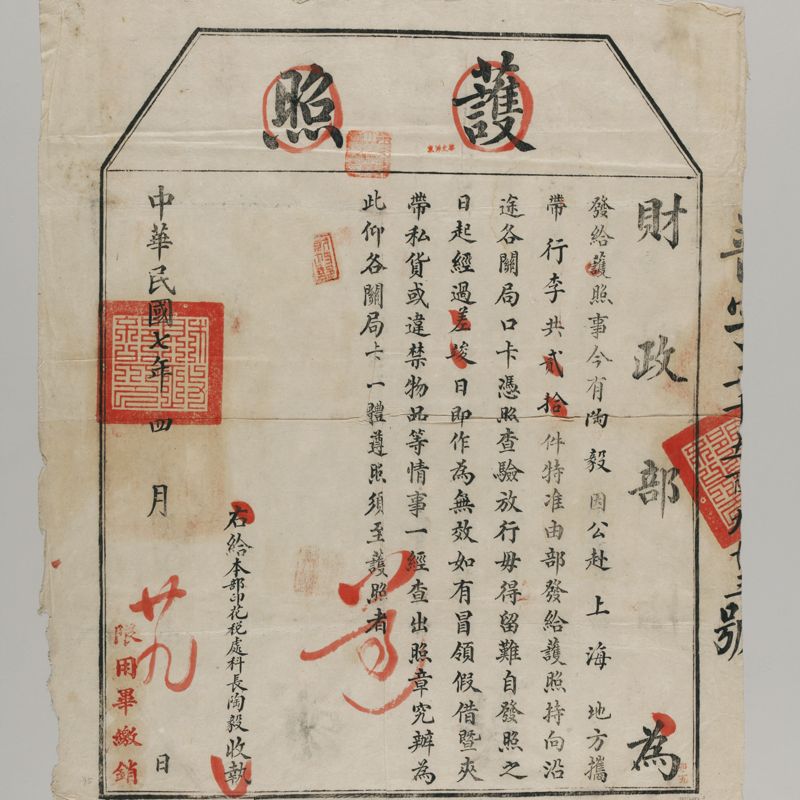 護照
財政部為
發給護照事今有陶毅因公赴上海地方攜
帶行李共貳拾件特准由部發給護照持向沿
途各關局口卡憑照查驗放行毋得留難自發照之
日起經過差竣日即作為無效如有冒領假借暨夾
帶私貨或違禁物品等情事一經查出照章究辦為
此仰各關局卡一體遵照須至護照者
右給本部印花税處科長陶毅收執
中華民國七年四月廿九日
限用畢繳銷
號